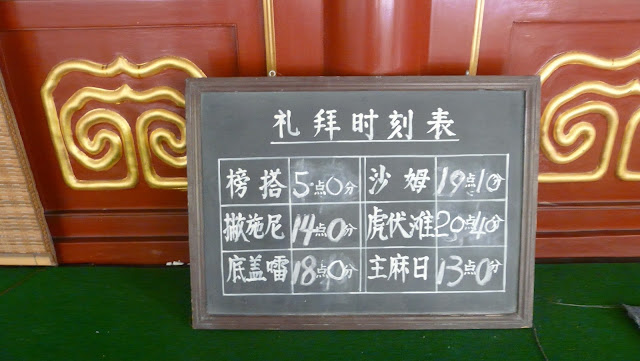 礼拜时刻表
榜搭 5点0分 沙姆 19点10分
撇施尼 14点0分 虎伏滩 20点40分
底盖噹 18点0分 主麻日 13点0分